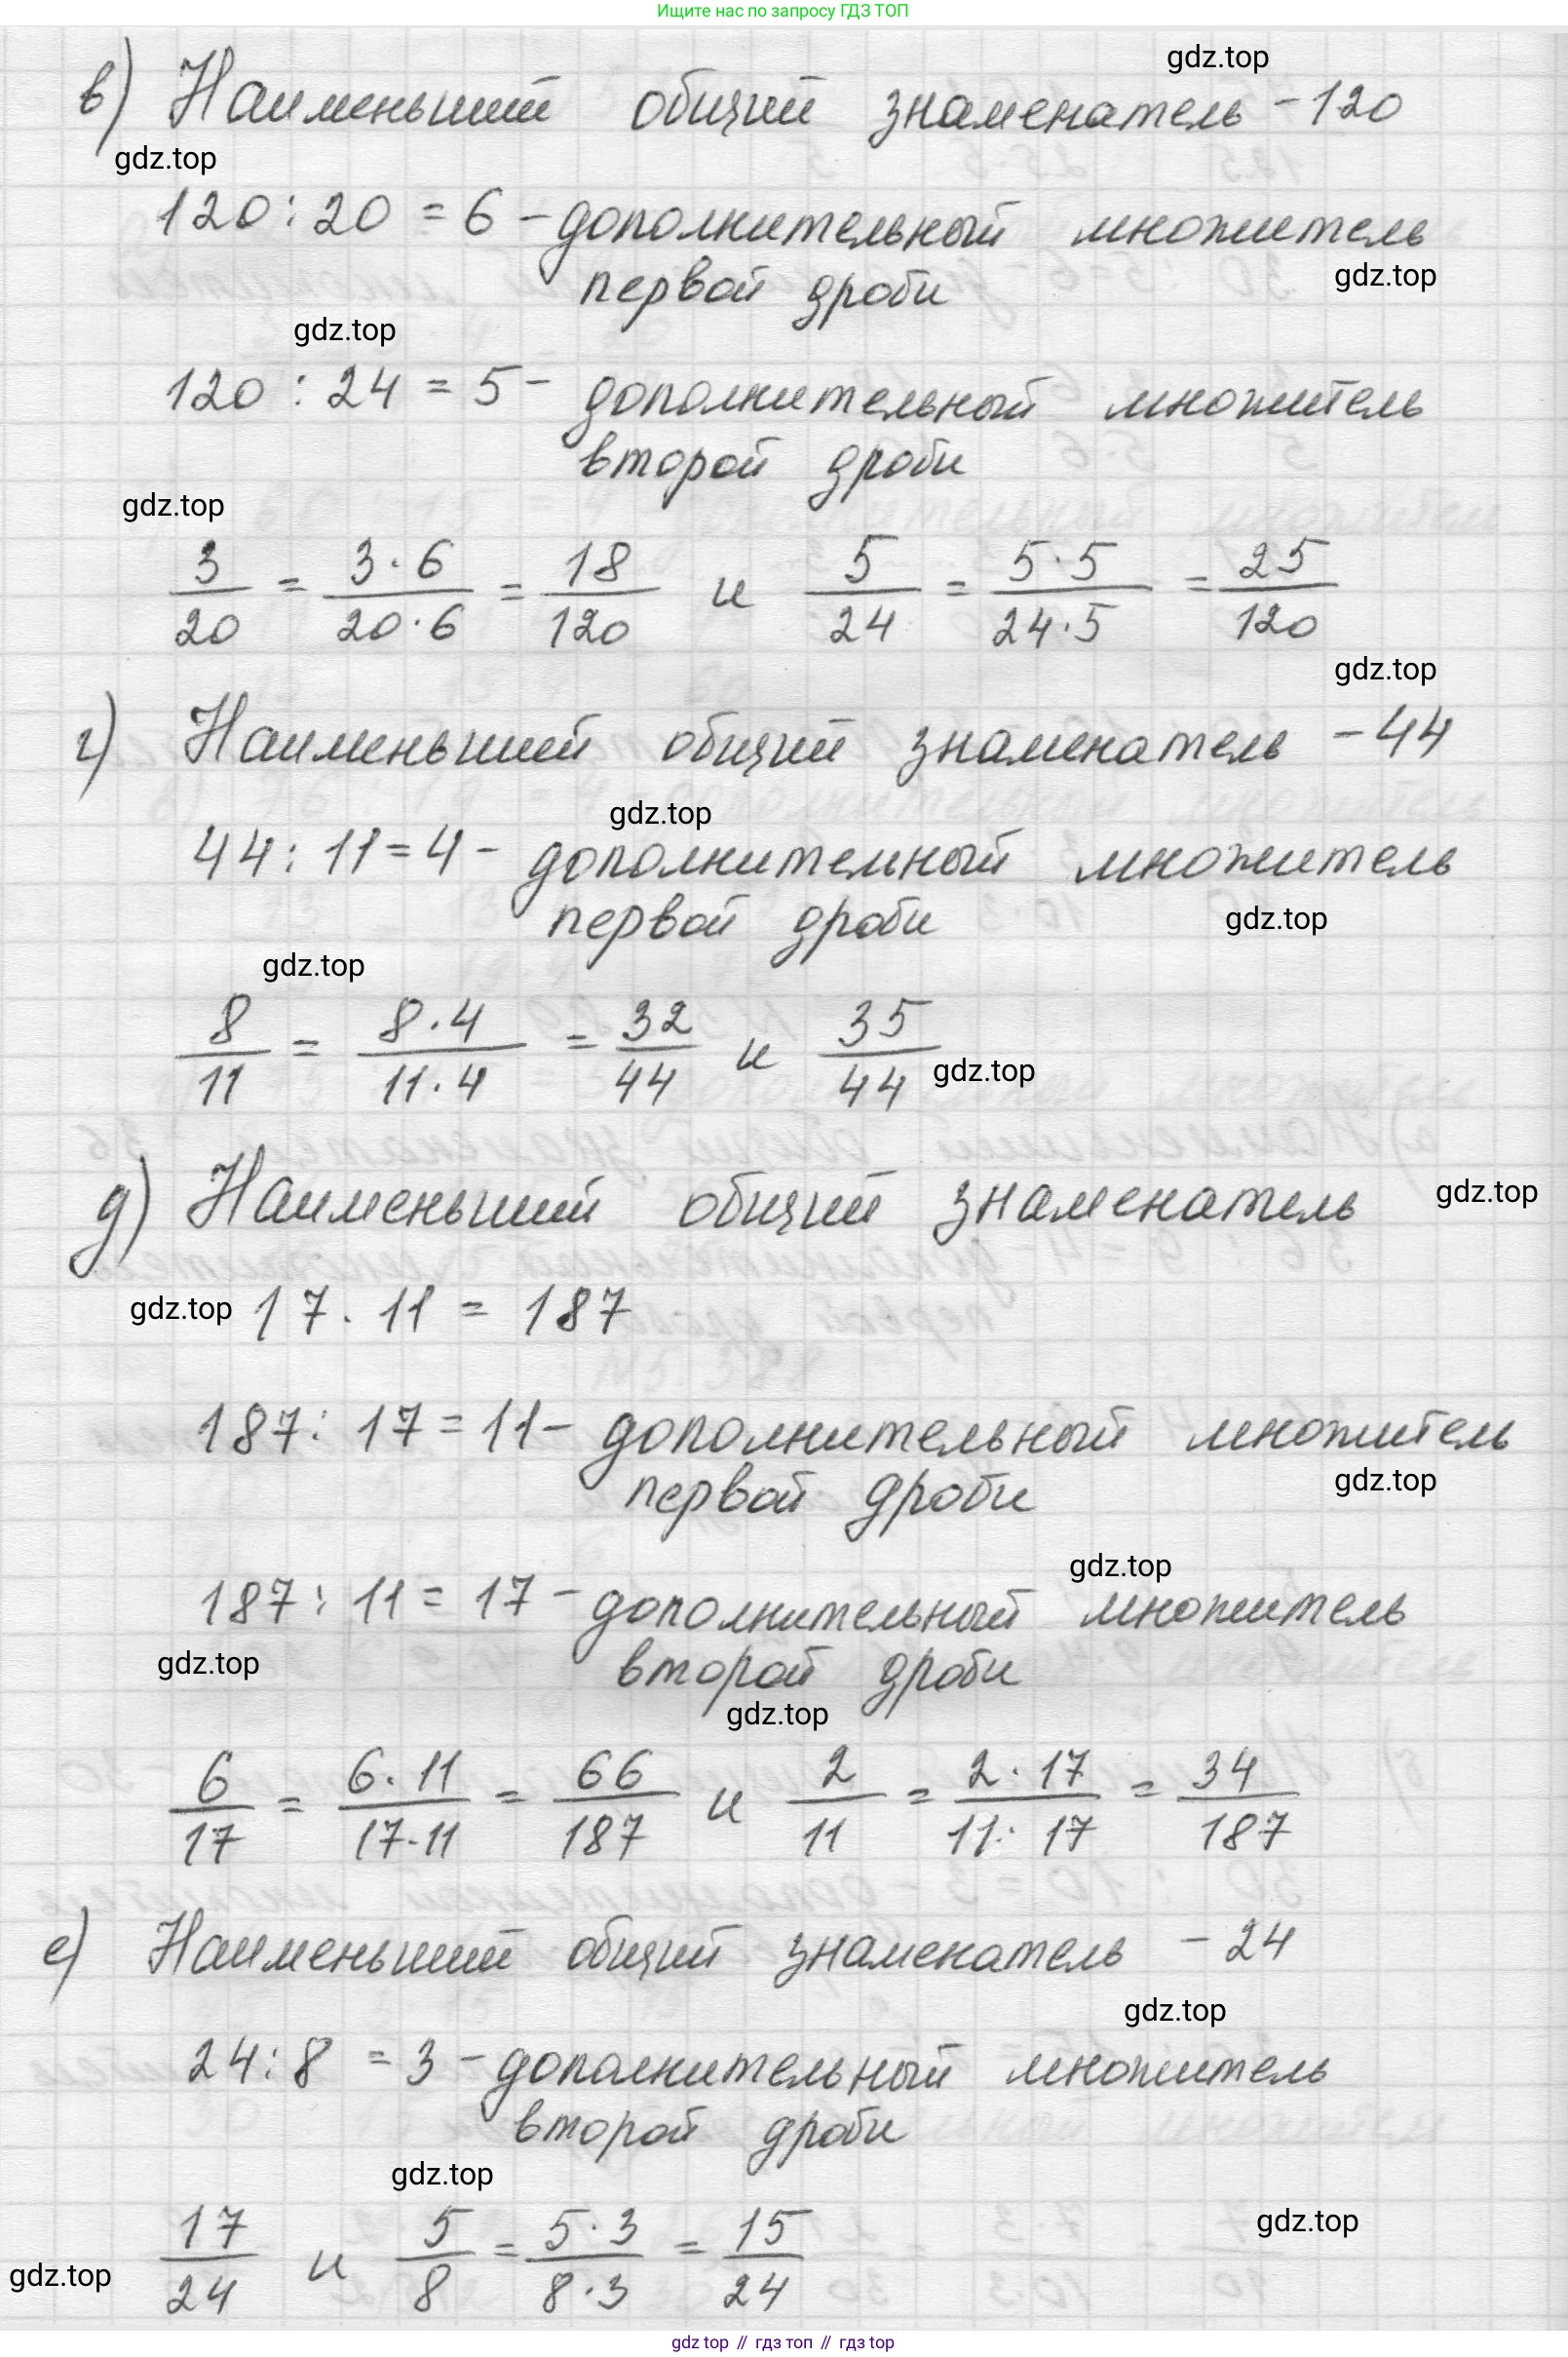 Ищите нас по запросу ГДЗ ТОП
gdz.top
в) Наименьший общий знаменатель - 120
gdz.top
120 : 20 = 6 - дополнительный множитель
первой дроби
gdz.top
gdz.top
120 : 24 = 5 - дополнительный множитель
второй дроби
gdz.top
3/20 = 3·6/20·6 = 18/120 и 5/24 = 5·5/24·5 = 25/120
gdz.top
г) Наименьший общий знаменатель - 44
gdz.top
44 : 11 = 4 - дополнительный множитель
первой дроби
gdz.top
gdz.top
8/11 = 8·4/11·4 = 32/44 и 35/44
gdz.top
д) Наименьший общий знаменатель
gdz.top
gdz.top
17 · 11 = 187
187 : 17 = 11 - дополнительный множитель
первой дроби
gdz.top
gdz.top
187 : 11 = 17 - дополнительный множитель
gdz.top
второй дроби
gdz.top
6/17 = 6·11/17·11 = 66/187 и 2/11 = 2·17/11·17 = 34/187
е) Наименьший общий знаменатель - 24
gdz.top
24 : 8 = 3 - дополнительный множитель
второй дроби
gdz.top
17/24 и 5/8 = 5·3/8·3 = 15/24
gdz.top
gdz.top
gdz top // гдз топ // гдз top